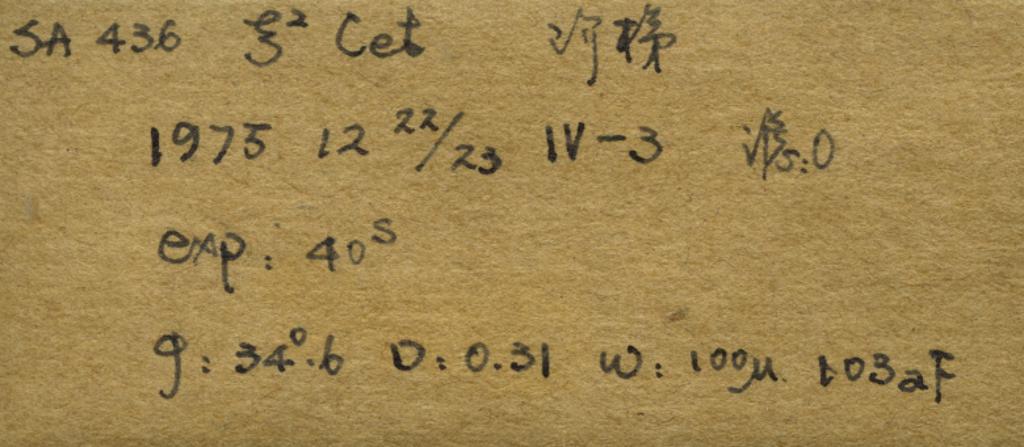 SA 436 ξ² Cet 河梯
1975 12 22/23 IV-3 :0
exp: 40ˢ
φ: 34°.6 D: 0.31 W: 100μ 103aF